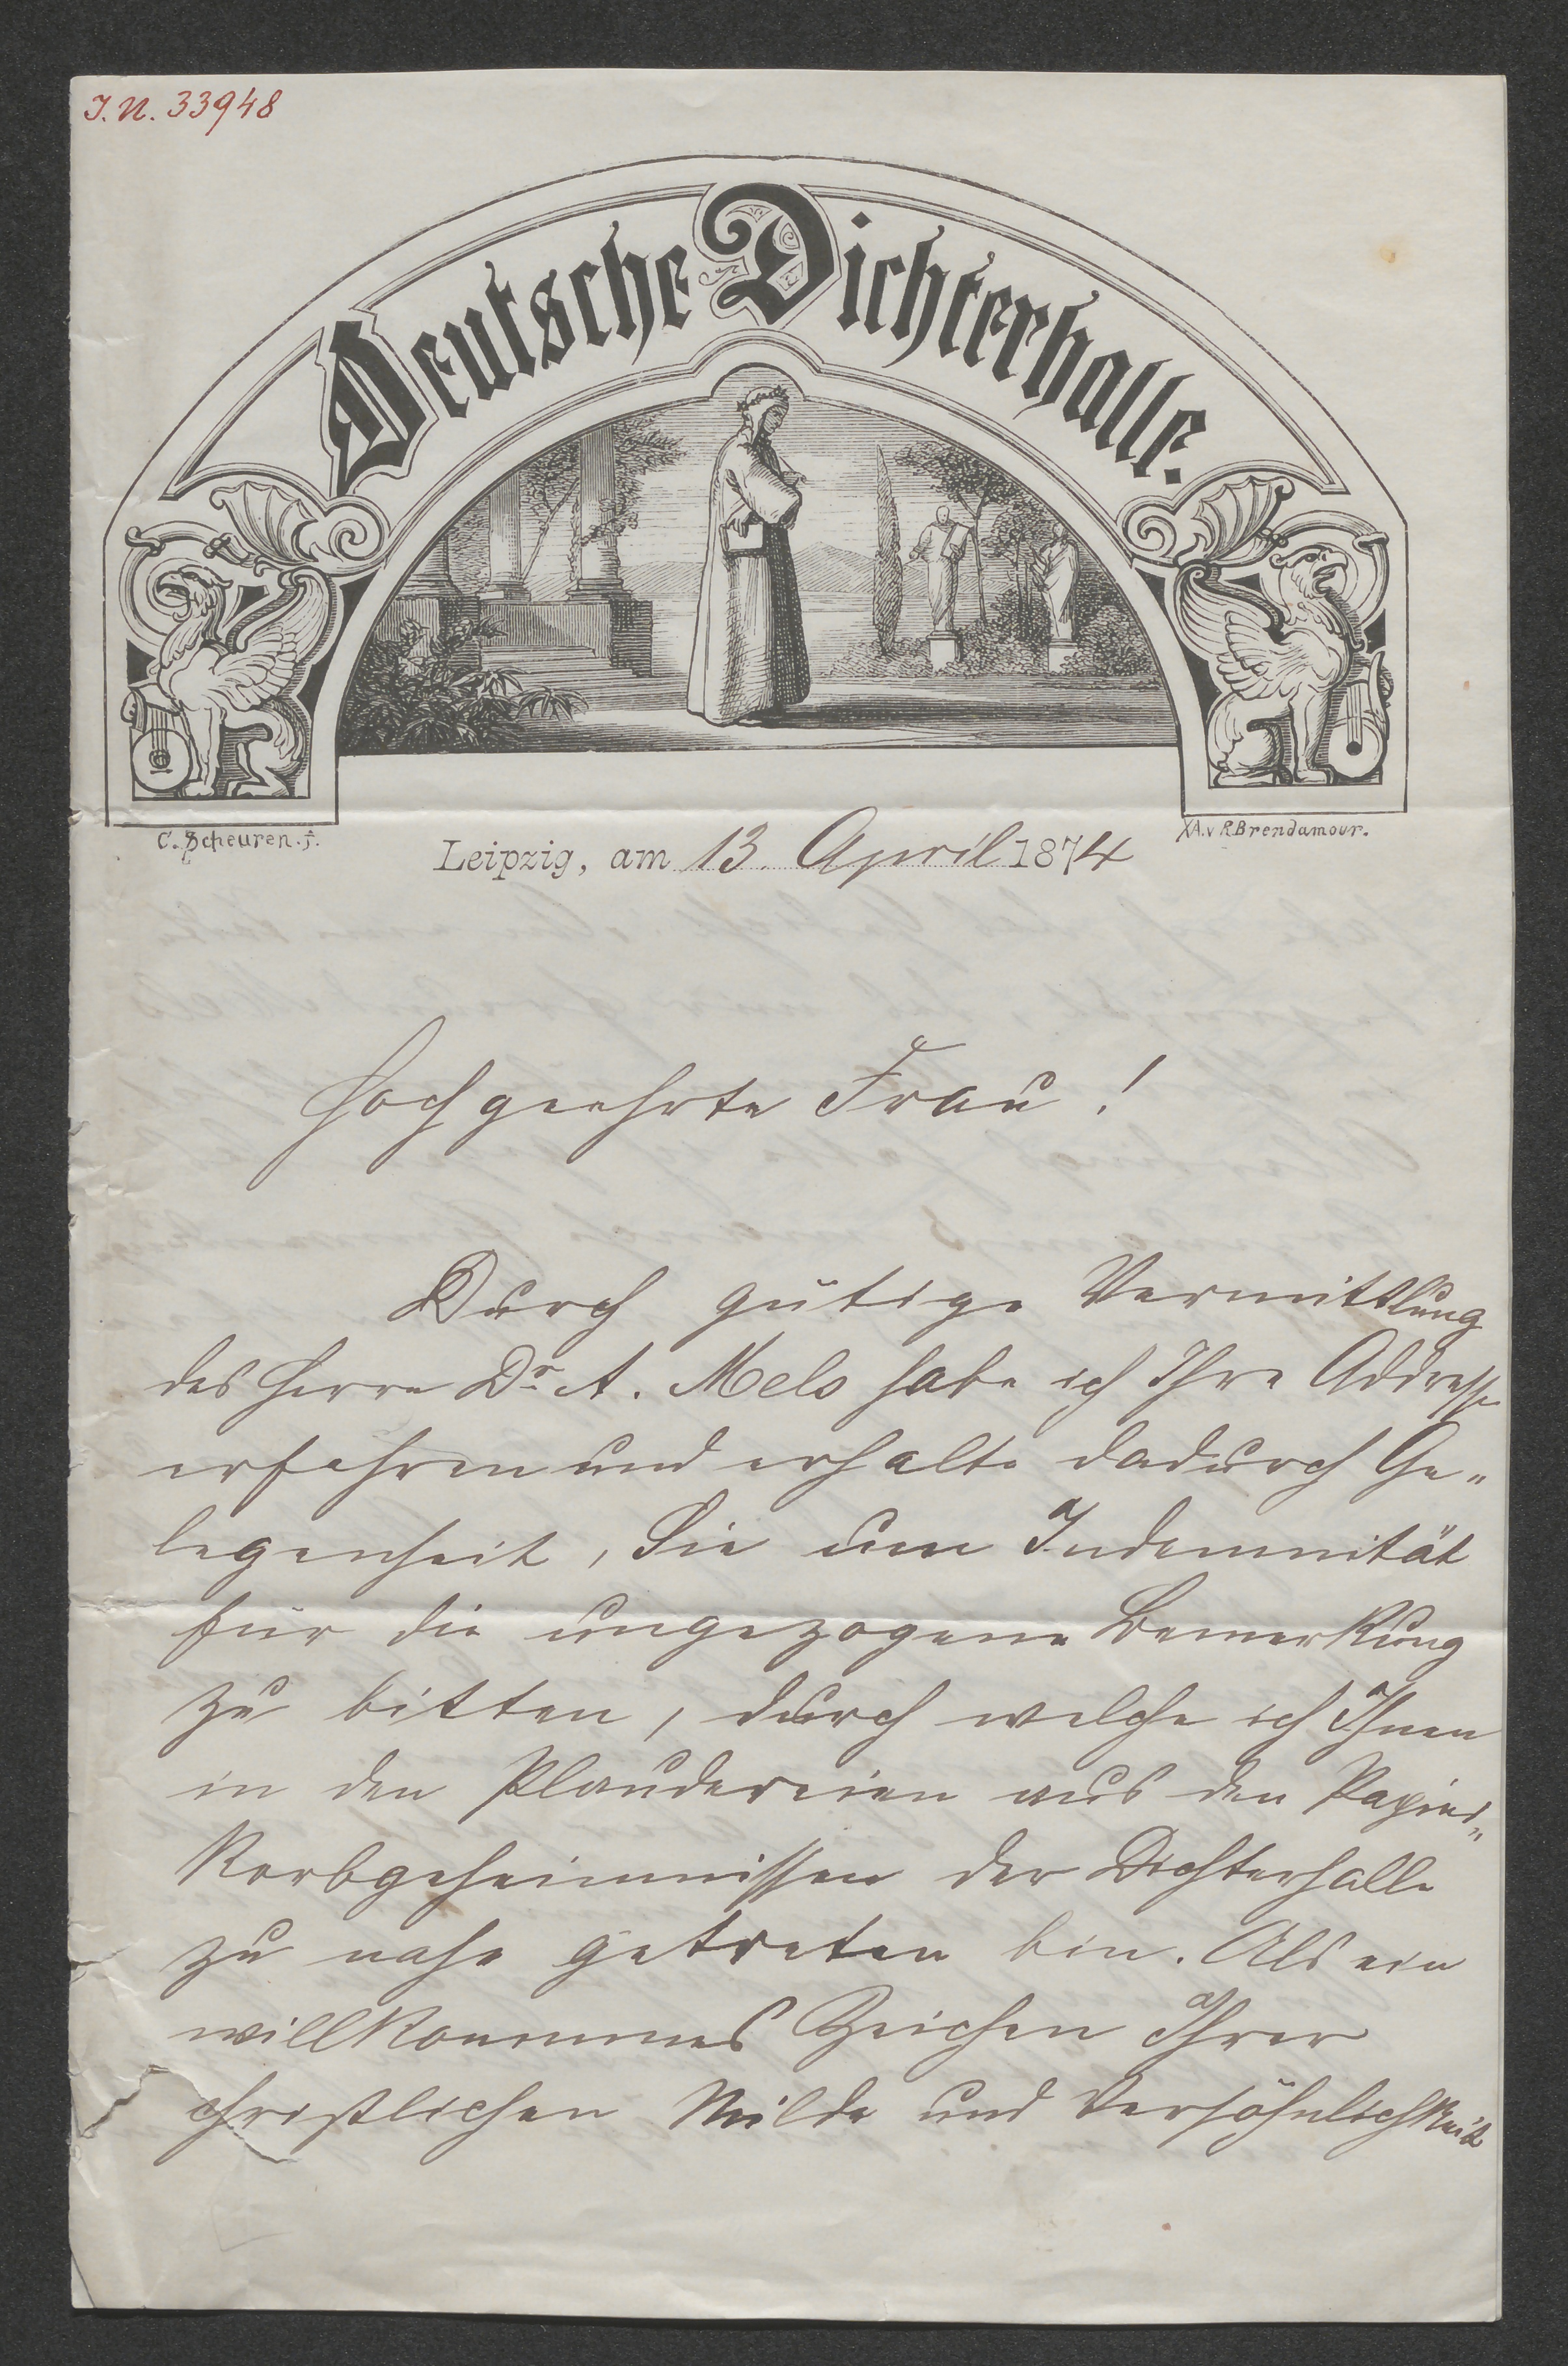 I. N. 33948
Deutsche Dichterhalle.
C. Scheuren. f.
XA. v R. Brendamour.
Leipzig, am 13. April 1874
Hochgeehrte Frau!
Durch gütige Vermittlung
des Herrn Dr. A. Mels habe ich Ihre Addresse
erfahren und erhalte dadurch Ge„
legenheit, Sie um Indemnität
für die ungezogene Bemerkung
zu bitten, durch welche ich Ihnen
in den Plaudereien aus den Papier„
korbgeheimnissen der Dichterhalle
zu nahe getreten bin. Als ein
willkommnes Zeichen Ihrer
christlichen Milde und Versöhnlichkeit